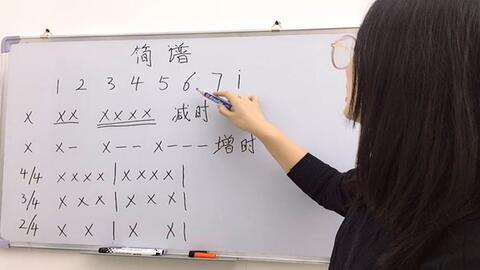 简谱
1 2 3 4 5 6 7 i
x xx xxxx 减时
x x- x-- x--- 增时
4/4 xxxx|xxxx|
3/4 xxx|xxx|
2/4 xx|xx|